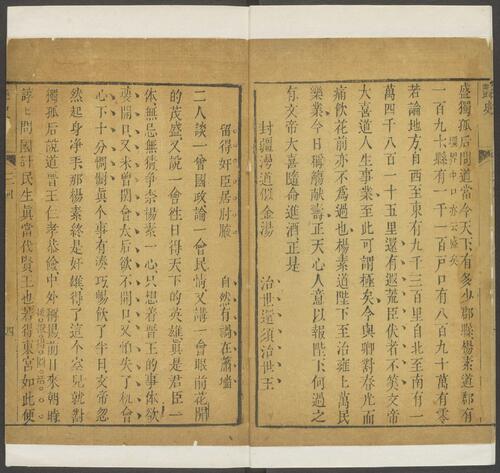 盛獨孤后問道當今天下有多少郡縣楊素道郡有
一百九十縣有一千一百戸口有八百九十萬有零
若論地方自西至東有九千三百里自北至南有一
萬四千八百一十五里還有遐荒臣伏者不筭文帝
大喜道人生事業至此可謂極矣今與卿對春光而
痛飲花前亦不為過也楊素道陛下至治雍上萬民
樂業今日稱觴獻壽正天心人意以報陛下何過之
有文帝大喜隨命進酒正是
封疆謾道假金湯
治世還須治世王
留得奸臣居肘腋
自然有禍在蕭墻
二人談一會國政論一會民情又講一會眼前花開
的茂盛又說一會徃日得天下的英雄真是君臣一
體無忌無猜爭奈楊素一心只想着晉王的事体欲
要開口又未曾開會太后欲不開口又怕失了机會
心下十分懮懼與不事有湊巧暢飲了半日文帝忽
然起身淨手那楊素終是奸雄得了這个空兒就對
獨孤后說道晋王仁孝恭儉中外稱揚前日來朝時
諄上問國計民生真當代賢王也若得東宮如此便